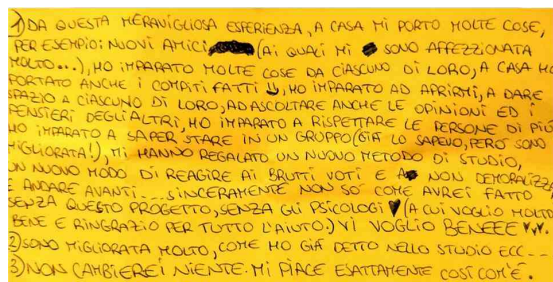 1) DA QUESTA MERAVIGLIOSA ESPERIENZA, A CASA MI PORTO MOLTE COSE,
PER ESEMPIO: NUOVI AMICI (AI QUALI MI SONO AFFEZZIONATA
MOLTO...), HO IMPARATO MOLTE COSE DA CIASCUNO DI LORO, A CASA HO
PORTATO ANCHE I COMPITI FATTI, HO IMPARATO AD APRIRMI, A DARE
SPAZIO A CIASCUNO DI LORO, AD ASCOLTARE ANCHE LE OPINIONI ED I
PENSIERI DEGLI ALTRI, HO IMPARATO A RISPETTARE LE PERSONE DI PIÙ
HO IMPARATO A SAPER STARE IN UN GRUPPO (GIÀ LO SAPEVO, PERÒ SONO
MIGLIORATA!), MI HANNO REGALATO UN NUOVO METODO DI STUDIO,
UN NUOVO MODO DI REAGIRE AI BRUTTI VOTI E A NON DEMORALIZZ
E ANDARE AVANTI... SINCERAMENTE NON SO COME AVREI FATTO
SENZA QUESTO PROGETTO, SENZA GLI PSICOLOGI ♥ (A CUI VOGLIO MOLTO
BENE E RINGRAZIO PER TUTTO L'AIUTO.) VI VOGLIO BENEEE ♥♥♥.
2) SONO MIGLIORATA MOLTO, COME HO GIÀ DETTO NELLO STUDIO ECC...
3) NON CAMBIEREI NIENTE. MI PIACE ESATTAMENTE COSÌ COM'È.